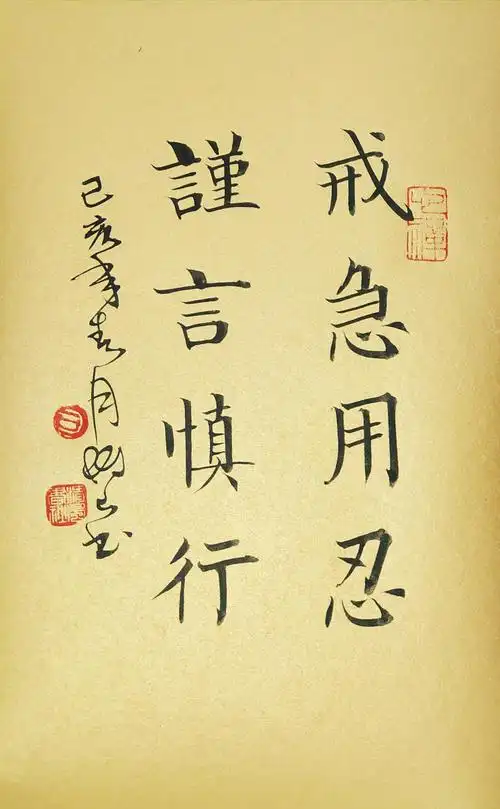 戒急用忍
謹言慎行
己亥年春月
书